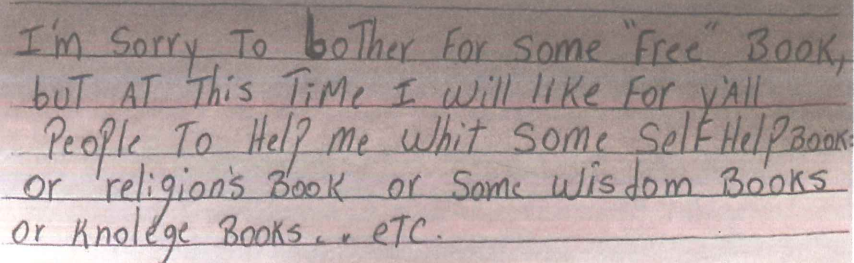 I'm Sorry To bother For some "Free" Book,
buT AT This Time I will like For y'All
People To Help me whit some SelF Help Books
or religion's Book or some wisdom Books
or knolege Books... eTC.